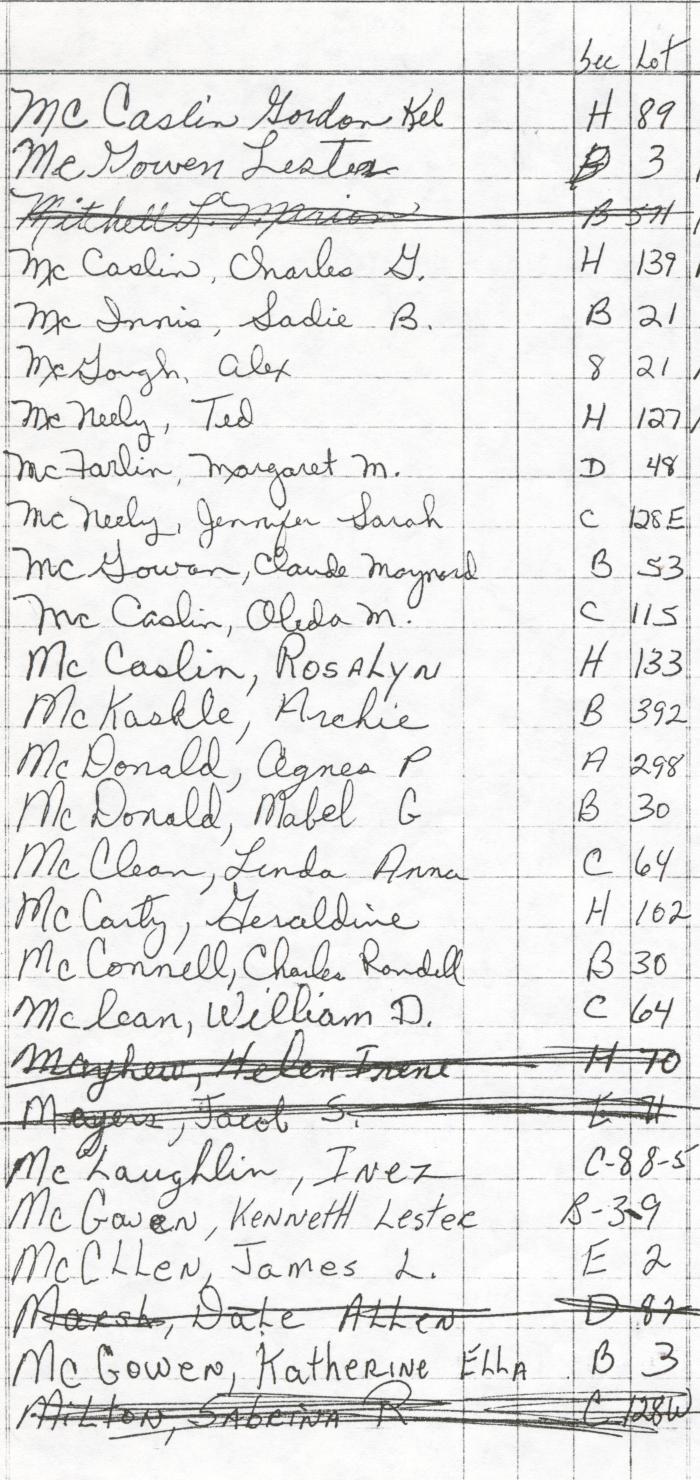 Sec Lot
Mc Caslin Gordon Kel H 89
Mc Gowen Lester B 3
Mitchell L. Marion B 571
Mc Caslin, Charles G. H 139
Mc Innis, Sadie B. B 21
McGough, Alex 8 21
McNeely, Ted H 127
McFarlin, Margaret M. D 48
Mc Neely, Jennifer Sarah C 128E
Mc Gowan, Claude Maynard B 53
Mc Caslin, Oleda M. C 115
Mc Caslin, ROSALYN H 133
McKaskle, Archie B 392
McDonald, Agnes P A 298
McDonald, Mabel G B 30
McClean, Linda Anna C 64
McCarty, Geraldine H 102
McConnell, Charles Randell B 30
Mclean, William D. C 64
Mayhew, Helen Irene H 70
Mayers, Jacob S. E 71
McLaughlin, INEZ C-88-5
McGowen, KENNETH Lester B-3-9
McCLLEN, James L. E 2
Marsh, Dale ALLEN D 87
McGowen, Katherine ELLA B 3
MILTON, SABRINA R C 128W